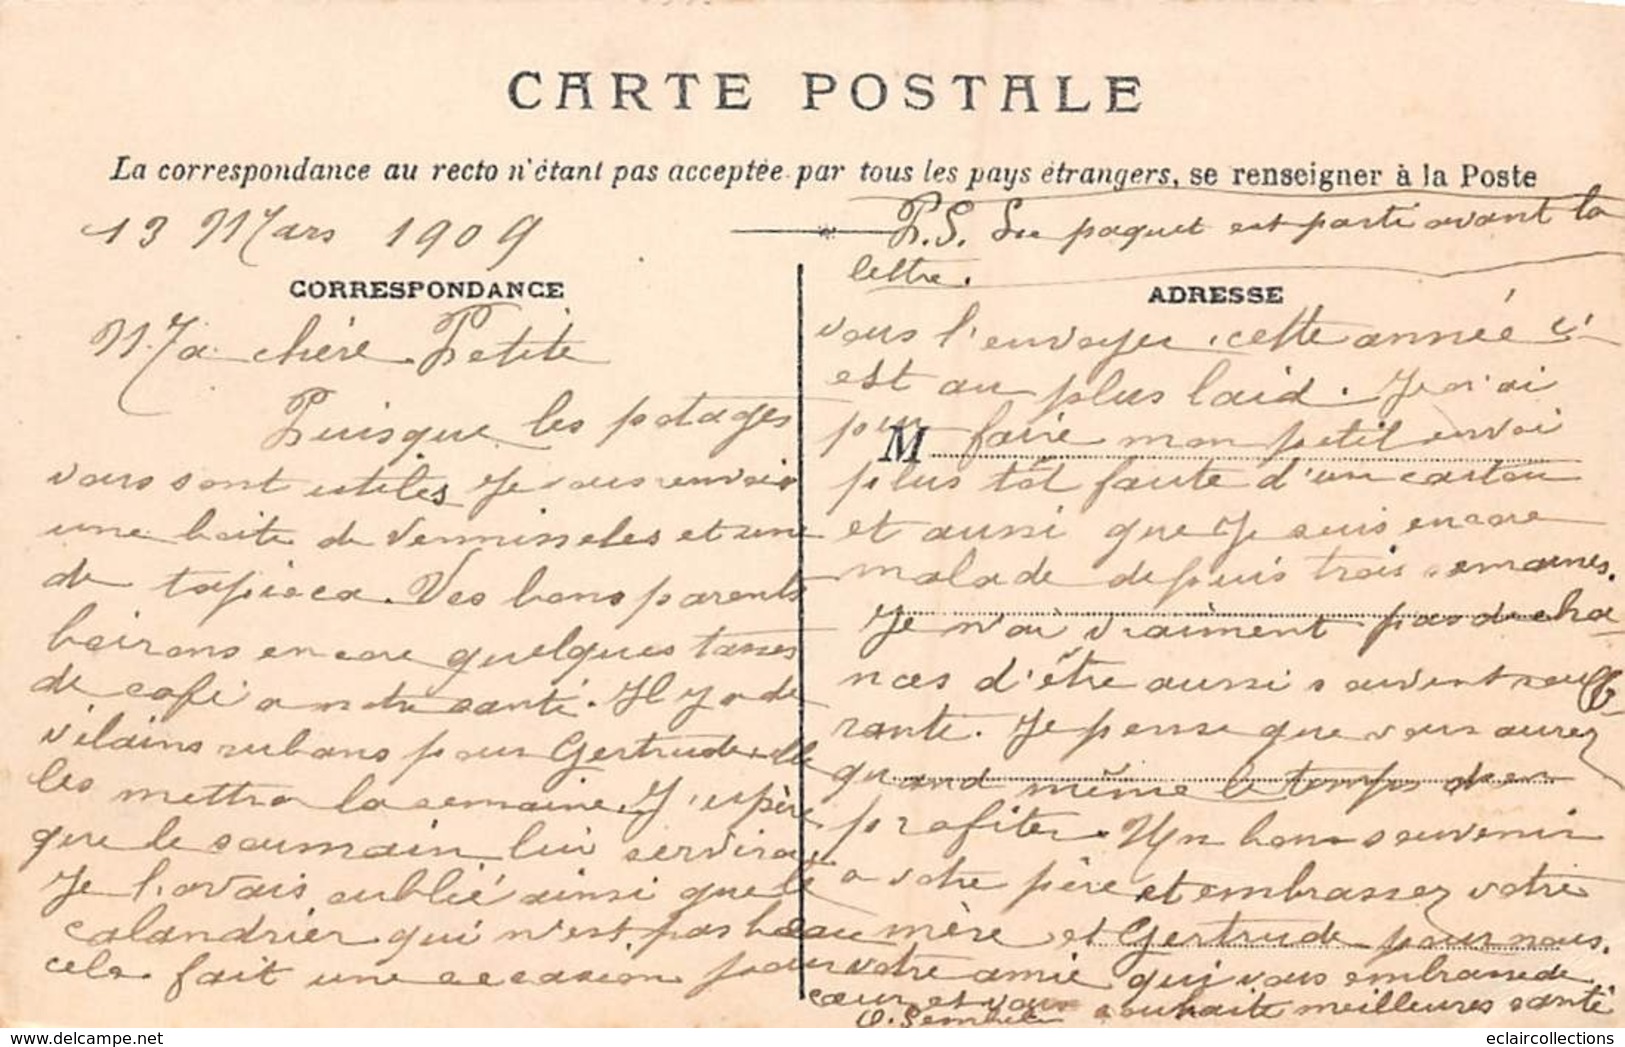 CARTE POSTALE
La correspondance au recto n'étant pas acceptée par tous les pays étrangers, se renseigner à la Poste
13 Mars 1909
CORRESPONDANCE
Ma chère Petite
Puisque les potages
vous sont utiles je vous renvoie
une boite de vermisseles et une
de tapioca. Vos bons parents
boirons encore quelques tasses
de café a notre santé. Il y a de
vilains rubans pour Gertrude elle
les mettra la semaine. J'espère
que le soumain lui servira
Je l'avais oublié ainsi que le
calandrier qui n'est pas beau
cela fait une occasion pour
P.S. Le paquet est parti avant la
lettre.
ADRESSE
vous l'envoyer, cette année c'
est au plus laid. Je n'ai
pu faire mon petit envoi
M
plus tôt faute d'un carton
et aussi que je suis encore
malade depuis trois semaines.
Je n'ai vraiment pas de cha-
nces d'être aussi souvent souff-
rante. Je pense que vous aurez
quand même le temps d'en
profiter. Un bon souvenir
a votre père et embrassez votre
mère et Gertrude pour nous.
votre amie qui vous embrasse de
cœur et vous souhaite meilleures santé
eclaircollections